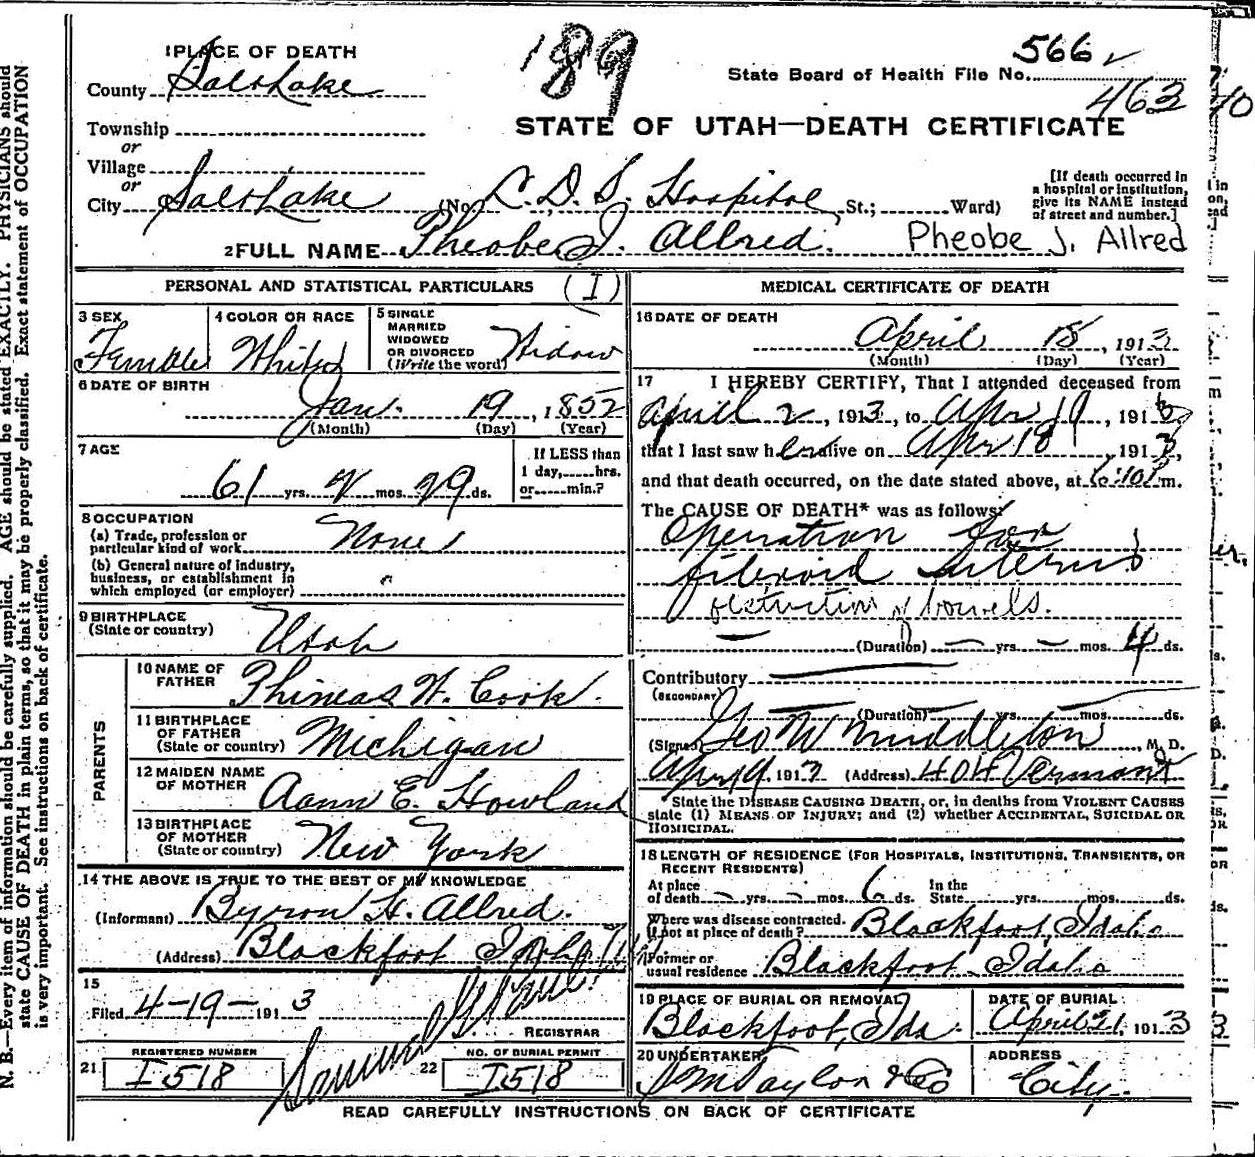 189
566
State Board of Health File No.
463
STATE OF UTAH—DEATH CERTIFICATE
1 PLACE OF DEATH
County Salt Lake
Township
or
Village
or
City Salt Lake (No. L. D. S. Hospital, St.; Ward)
[If death occurred in
a hospital or institution,
give its NAME instead
of street and number.]
2 FULL NAME Pheobe J. Allred. Pheobe J. Allred
PERSONAL AND STATISTICAL PARTICULARS (I)
3 SEX
Female
4 COLOR OR RACE
White
5 SINGLE
MARRIED
WIDOWED
OR DIVORCED
(Write the word)
Widow
6 DATE OF BIRTH
Jan. 19, 1852
(Month) (Day) (Year)
7 AGE
61 yrs. mos. 29 ds.
If LESS than
1 day, hrs.
or min.?
8 OCCUPATION
(a) Trade, profession or
particular kind of work None
(b) General nature of industry,
business, or establishment in
which employed (or employer)
9 BIRTHPLACE
(State or country) Utah
PARENTS
10 NAME OF
FATHER Phineas W. Cook.
11 BIRTHPLACE
OF FATHER
(State or country) Michigan
12 MAIDEN NAME
OF MOTHER Aann E. Howland
13 BIRTHPLACE
OF MOTHER
(State or country) New York
14 THE ABOVE IS TRUE TO THE BEST OF MY KNOWLEDGE
(Informant) Byron H. Allred.
(Address) Blackfoot Idaho
15
Filed 4-19- 1913
REGISTRAR
REGISTERED NUMBER
21 I518
NO. OF BURIAL PERMIT
22 I518
MEDICAL CERTIFICATE OF DEATH
16 DATE OF DEATH
April 18, 1913
(Month) (Day) (Year)
17 I HEREBY CERTIFY, That I attended deceased from
April 2, 1913, to Apr 19, 1913
that I last saw her alive on Apr 18, 1913,
and that death occurred, on the date stated above, at m.
The CAUSE OF DEATH* was as follows:
Operation for
fibroid uterus
obstruction of bowels.
(Duration) — yrs. — mos. 4 ds.
Contributory
(SECONDARY)
(Duration) yrs. mos. ds.
(Signed) Geo W Middleton, M. D.
Apr 19 1913 (Address) 404 Vermont
State the DISEASE CAUSING DEATH, or, in deaths from VIOLENT CAUSES
state (1) MEANS OF INJURY; and (2) whether ACCIDENTAL, SUICIDAL OR
HOMICIDAL.
18 LENGTH OF RESIDENCE (FOR HOSPITALS, INSTITUTIONS, TRANSIENTS, OR
RECENT RESIDENTS)
At place
of death — yrs. — mos. 6 ds. In the
State yrs. mos. ds.
Where was disease contracted.
if not at place of death? Blackfoot, Idaho
Former or
usual residence Blackfoot Idaho
19 PLACE OF BURIAL OR REMOVAL
Blackfoot, Ida.
DATE OF BURIAL
April 21, 1913
20 UNDERTAKER
S M Taylor & Co
ADDRESS
City.
READ CAREFULLY INSTRUCTIONS ON BACK OF CERTIFICATE
N. B.—Every item of information should be carefully supplied. AGE should be stated EXACTLY. PHYSICIANS should
state CAUSE OF DEATH in plain terms, so that it may be properly classified. Exact statement of OCCUPATION
is very important. See instructions on back of certificate.